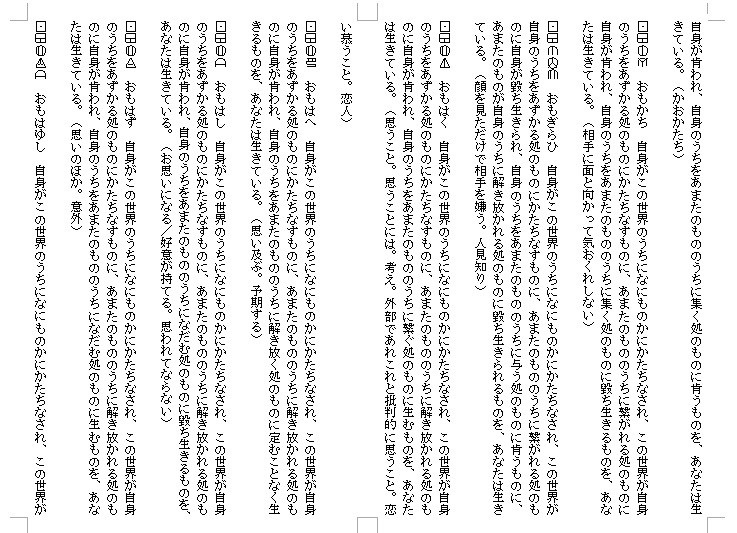 自身が肯われ、自身のうちをあまたのもののうちに集く処のものに肯うものを、あなたは生
きている。（かおかたち）
おもかち　自身がこの世界のうちになにものかにかたちなされ、この世界が自身
のうちをあずかる処のものにかたちなすものに、あまたのもののうちに繋がれる処のものに
自身が肯われ、自身のうちをあまたのもののうちに集く処のものに毀ち生きるものを、あな
たは生きている。（相手に面と向かって気おくれしない）
おもぎらひ　自身がこの世界のうちになにものかにかたちなされ、この世界が
自身のうちをあずかる処のものにかたちなすものに、あまたのもののうちに繋がれる処のもの
のに自身が毀ち生きられ、自身のうちをあまたのもののうちに与う処のものに肯うものに、
あまたのものが自身のうちに解き放かれる処のものに毀ち生きられるものを、あなたは生き
ている。（顔を見ただけで相手を嫌う。人見知り）
おもはく　自身がこの世界のうちになにものかにかたちなされ、この世界が自身
のうちをあずかる処のものにかたちなすものに、あまたのもののうちに解き放かれる処のも
のに自身が肯われ、自身のうちをあまたのもののうちに繋ぐ処のものに生むものを、あなた
は生きている。（思うこと。思うことには。考え。外部であれこれと批判的に思うこと。恋
い慕うこと。恋人）
おもはへ　自身がこの世界のうちになにものかにかたちなされ、この世界が自身
のうちをあずかる処のものにかたちなすものに、あまたのもののうちに解き放かれる処のも
のに自身が肯われ、自身のうちをあまたのもののうちに解き放く処のものに定むことなく生
きるものを、あなたは生きている。（思い及ぶ。予期する）
おもはし　自身がこの世界のうちになにものかにかたちなされ、この世界が自身
のうちをあずかる処のものにかたちなすものに、あまたのもののうちに解き放かれる処のも
のに自身が肯われ、自身のうちをあまたのもののうちになだむ処のものに毀ち生きるものを、
あなたは生きている。（お思いになる／好意が持てる。思われてならない）
おもはず　自身がこの世界のうちになにものかにかたちなされ、この世界が自身
のうちをあずかる処のものにかたちなすものに、あまたのもののうちに解き放かれる処のも
のに自身が肯われ、自身のうちをあまたのもののうちになだむ処のものに生むものを、あな
たは生きている。（思いのほか。意外）
おもはゆし　自身がこの世界のうちになにものかにかたちなされ、この世界が